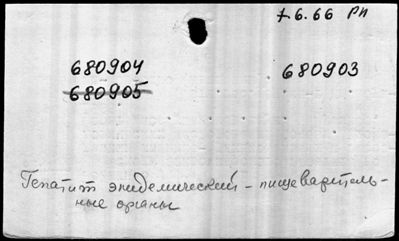 7.6.66 РН
680904 680903
680905
Гепатит эпидемический - пищеваритель-
ные органы